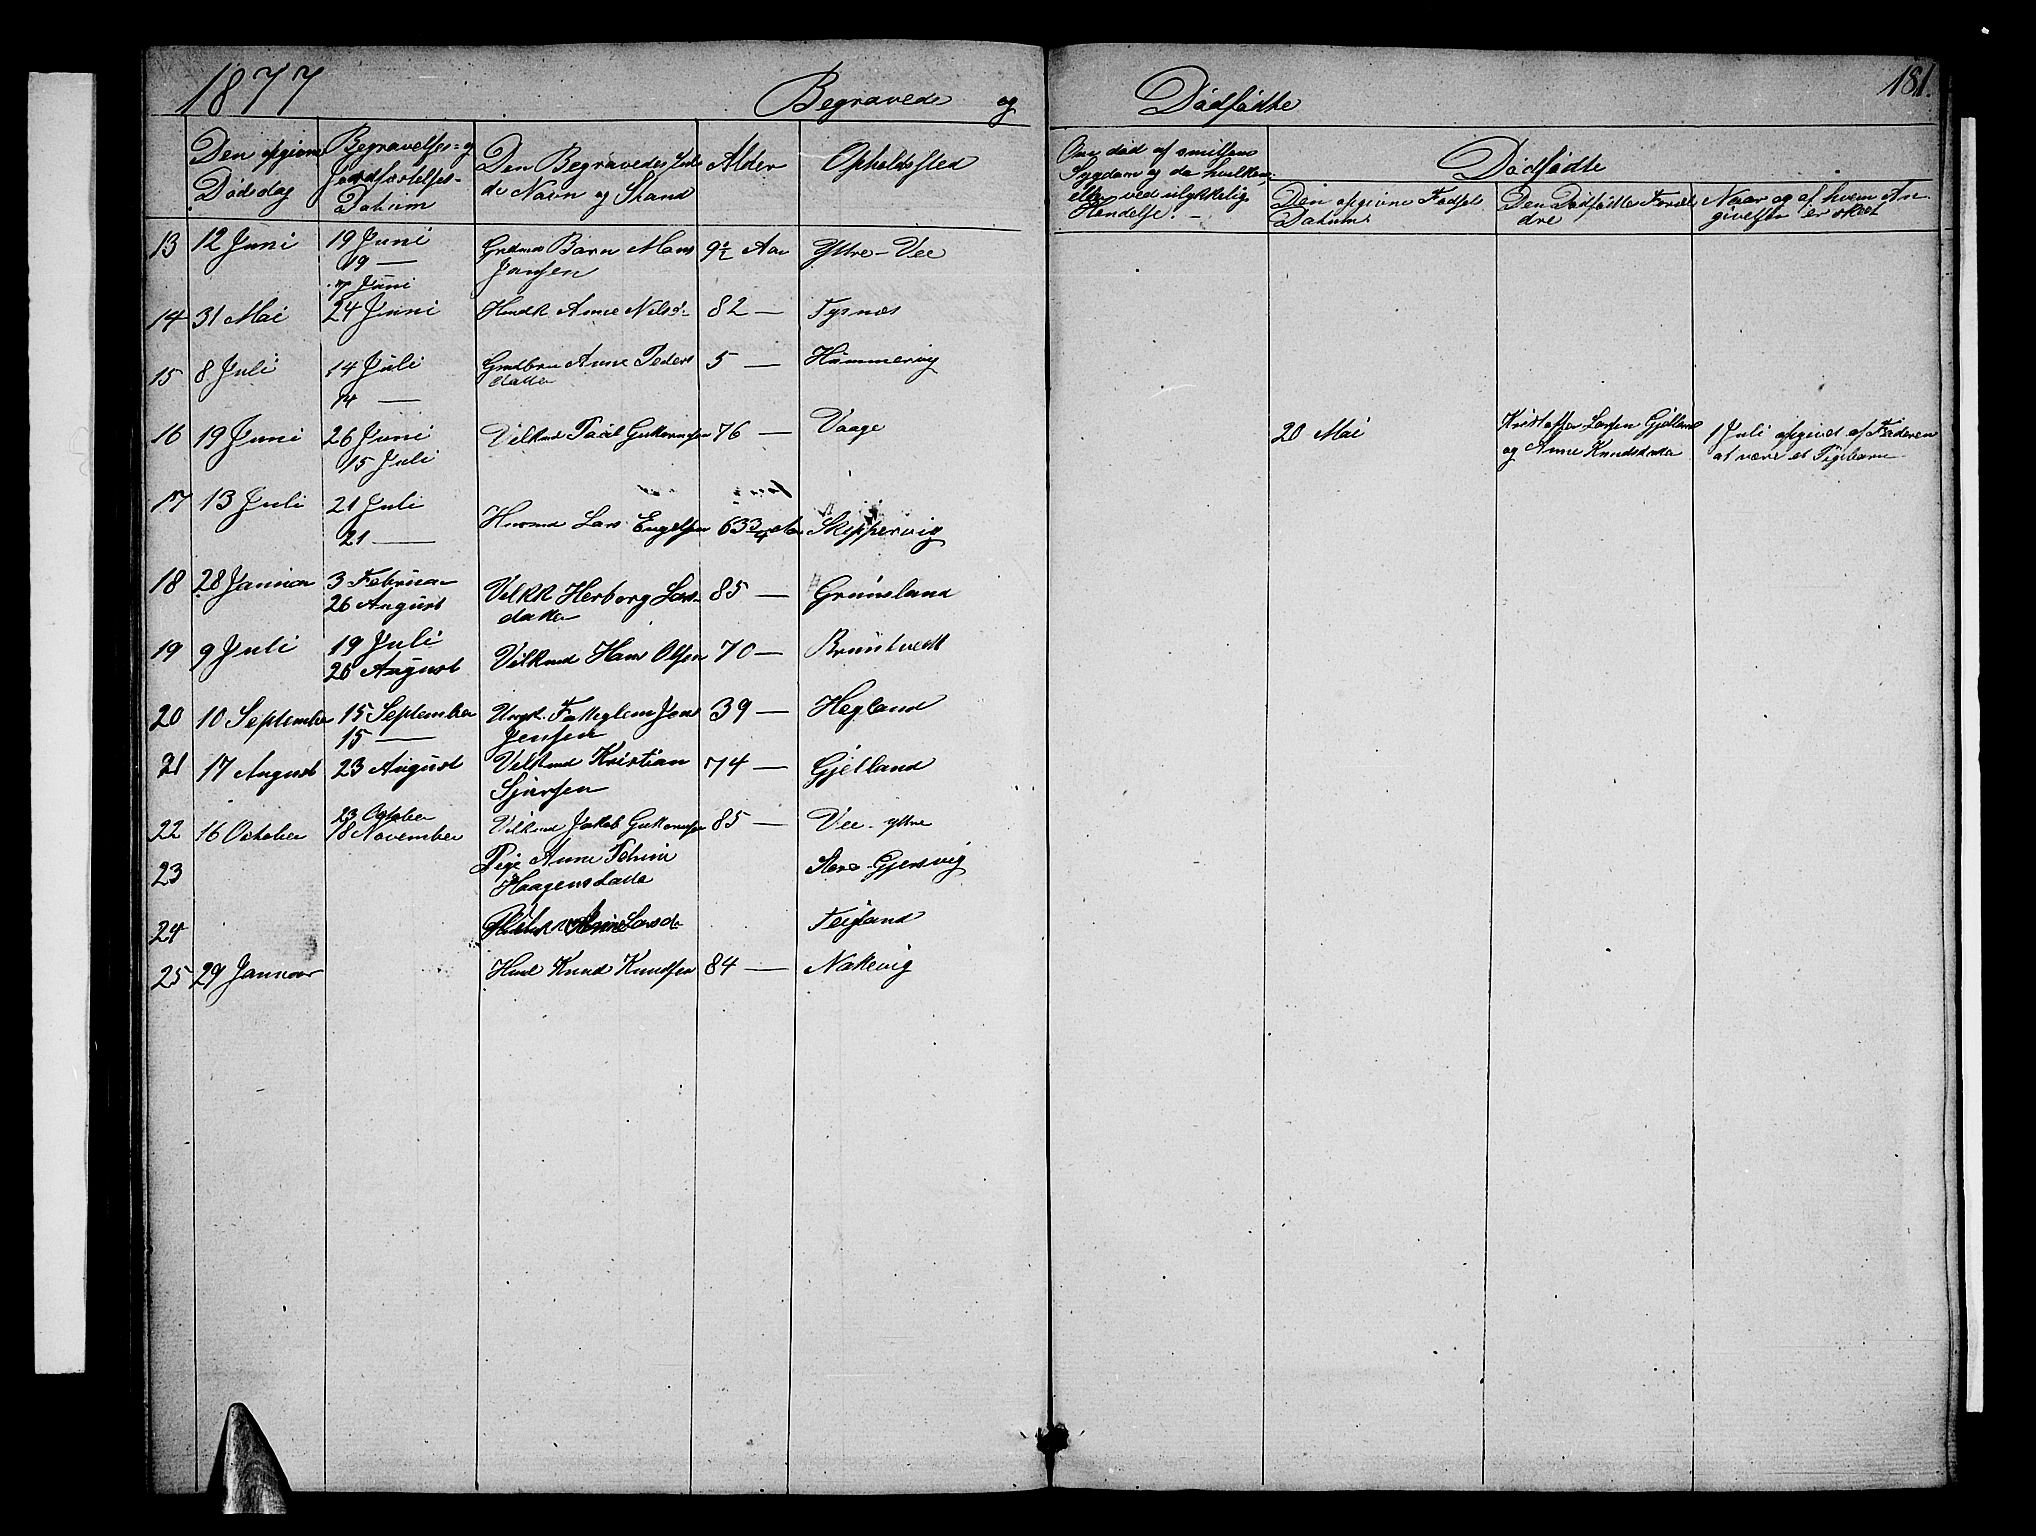 1877 Begravede og Dødfødte 181.
Den opgivne Dødsdag
Begravelses- og Jordfæstelses-Datum
Den Begravedes fulde Navn og Stand
Alder
Opholdssted
Om død af smitsom Sygdom og da hvilken, eller ved ulykkelig Hendelse.
Dødfødte
Den opgivne Fødsels Datum
Den Dødfødtes Forældre
Naar og af hvem Angivelsen er skeet
13 12 Juni 19 Juni Grdmds Barn Mons 9½ Aar Yttre-Vee
19 — Jansen
7 Juni
14 31 Mai 24 Juni Anne Nilsd. 82 — Tysnæs
15 8 Juli 14 Juli Anne Peders 5 — Hammervig
14 — datter
16 19 Juni 26 Juni Vilkmd Paal Guttormsen 76 — Vaage
15 Juli
20 Mai
Kristoffer Larsen Gjelland
og Anne Knudsdatter
1 Juli opgivet af Faderen
at være et Pigebarn
17 13 Juli 21 Juli Lars Engelsen 63 3/4 Aar Skippervig
21 —
18 28 Januar 3 Februar Vilkk Herborg Lars- 85 — Grønsland
26 August datter
19 9 Juli 19 Juli Vilkmd Hans Olsen 70 — Bruntvedt
26 August
20 10 September 15 September Ungk. Fattiglem Jens 39 — Hegland
15 — Jensen
21 17 August 23 August Vilkmd Kristian 74 — Gjelland
Sjursen
22 16 October 23 October Vilkmd Jakob Guttormsen 85 — Vee-yttre
18 November
23 Pige Anne Gjersvig
Haagensdatter
24 Larsd. Teigland
25 29 Januar Knud Knudsen 84 — Nattevig